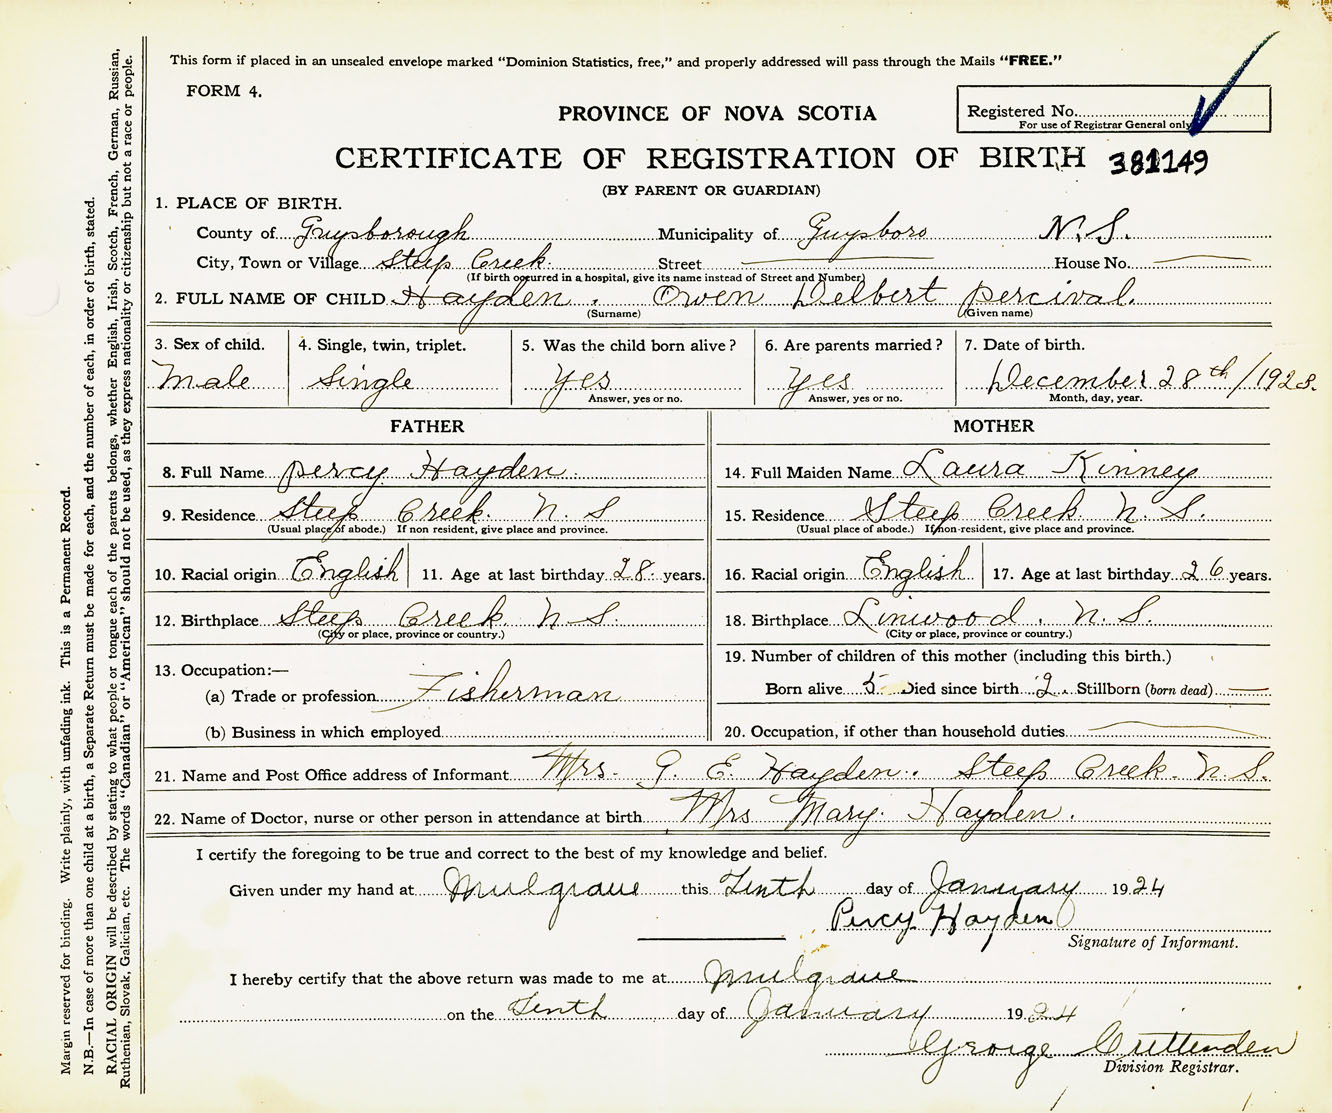 This form if placed in an unsealed envelope marked "Dominion Statistics, free," and properly addressed will pass through the Mails "FREE."
FORM 4.
PROVINCE OF NOVA SCOTIA
Registered No.
For use of Registrar General only
CERTIFICATE OF REGISTRATION OF BIRTH 381149
(BY PARENT OR GUARDIAN)
1. PLACE OF BIRTH.
County of Guysborough Municipality of Guysboro N.S.
City, Town or Village Steep Creek. Street House No.
(If birth occurred in a hospital, give its name instead of Street and Number)
2. FULL NAME OF CHILD Hayden. Owen Delbert Percival.
(Surname) (Given name)
3. Sex of child. 4. Single, twin, triplet. 5. Was the child born alive? 6. Are parents married? 7. Date of birth.
Male Single Yes Yes December 28th/1923.
Answer, yes or no. Answer, yes or no. Month, day, year.
FATHER MOTHER
8. Full Name Percy Hayden. 14. Full Maiden Name Laura Kinney
9. Residence Steep Creek. N. S 15. Residence Steep Creek. N. S.
(Usual place of abode.) If non resident, give place and province. (Usual place of abode.) If non-resident, give place and province.
10. Racial origin English 11. Age at last birthday 28. years. 16. Racial origin English 17. Age at last birthday 26 years.
12. Birthplace Steep Creek N. S. 18. Birthplace Linwood. N. S.
(City or place, province or country.) (City or place, province or country.)
13. Occupation:— 19. Number of children of this mother (including this birth.)
(a) Trade or profession Fisherman Born alive 5 Died since birth 2 Stillborn (born dead) —
(b) Business in which employed 20. Occupation, if other than household duties
21. Name and Post Office address of Informant Mrs. G. E. Hayden. Steep Creek. N. S.
22. Name of Doctor, nurse or other person in attendance at birth Mrs Mary Hayden.
I certify the foregoing to be true and correct to the best of my knowledge and belief.
Given under my hand at Mulgrave this Tenth day of January 1924
Percy Hayden
Signature of Informant.
I hereby certify that the above return was made to me at Mulgrave
on the Tenth day of January 1924
George Cruttenden
Division Registrar.
Margin reserved for binding. Write plainly, with unfading ink. This is a Permanent Record.
N.B.—In case of more than one child at a birth, a Separate Return must be made for each, and the number of each, in order of birth, stated.
RACIAL ORIGIN will be described by stating to what people or tongue each of the parents belongs, whether English, Irish, Scotch, French, German, Russian,
Ruthenian, Slovak, Galician, etc. The words "Canadian" or "American" should not be used, as they express nationality or citizenship but not a race or people.